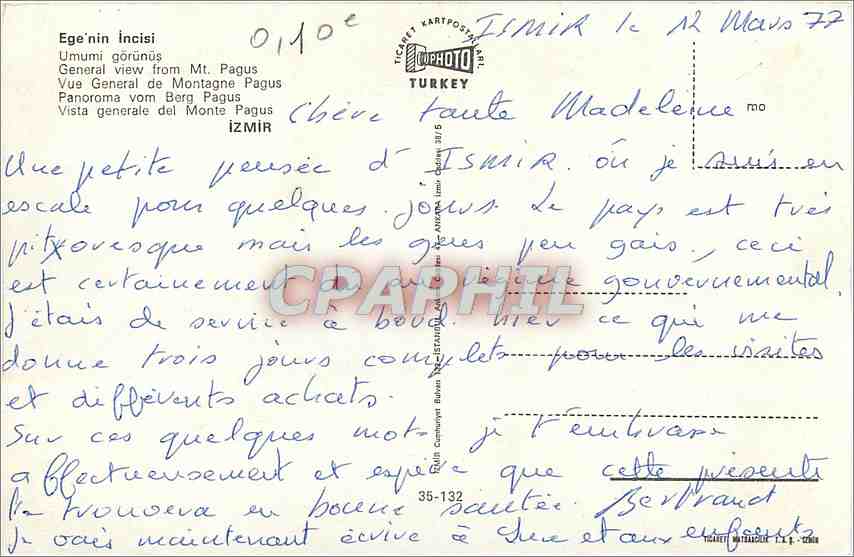 Ege'nin İncisi
Umumi görünüş
General view from Mt. Pagus
Vue General de Montagne Pagus
Panoroma vom Berg Pagus
Vista generale del Monte Pagus
İZMİR
0,10€
TICARET KARTPOSTALLARI.
COPHOTO
TURKEY
ISMIR le 12 Mars 77
mo
Chère tante Madeleine
Une petite pensée d'ISMIR. où je suis en
escale pour quelques jours. Le pays est très
pittoresque mais les gens peu gais, ceci
est certainement du au régime gouvernemental.
J'étais de service à bord hier ce qui me
donne trois jours complets pour les visites
et différents achats.
Sur ces quelques mots je t'embrasse
affectueusement et espère que cette présente
te trouvera en bonne santée. Bertrand
Je vais maintenant écrire à et aux enfants
CPAPHIL
İZMİR Cumhuriyet Bulvarı İSTANBUL Ankara Caddesi ANKARA İzmir Caddesi 38/5
35-132
TİCARET MATBAACILIK T.A.Ş. - İZMİR